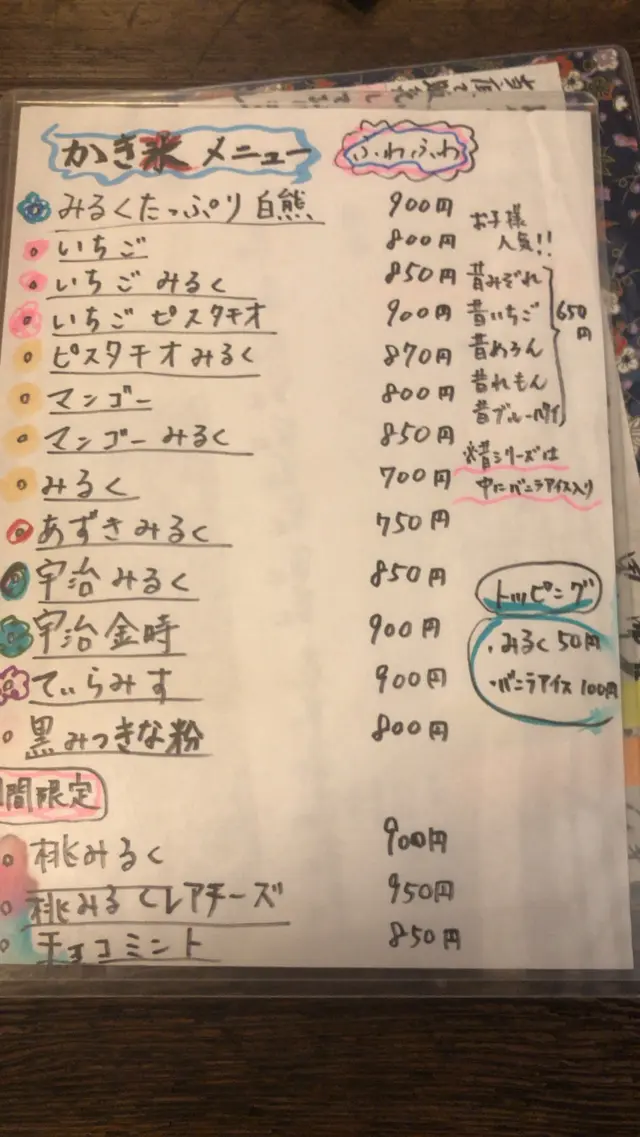 かき氷 メニュー ふわふわ
みるくたっぷり 白熊 900円
いちご 800円
いちごみるく 850円
いちごピスタチオ 900円
ピスタチオみるく 870円
マンゴー 800円
マンゴーみるく 850円
みるく 700円
あずきみるく 750円
宇治みるく 850円
宇治金時 900円
てぃらみす 900円
黒みつきな粉 800円
間限定
桃みるく 900円
桃みるくレアチーズ 950円
チョコミント 850円
お子様
人気!!
昔みぞれ
昔いちご
昔めろん
昔れもん
昔ブルーハワイ
650円
※昔シリーズは
中にバニラアイス入り
トッピング
・みるく 50円
・バニラアイス 100円